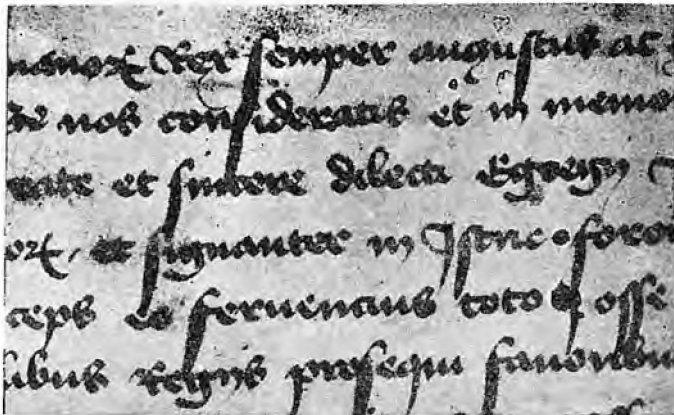 manorꝝ Rex semper augustus ac
nos consideratis et in memo
et sincere dilecti Egregij
et signanter in Istrie foro
ceps eo feruencius toto posse
libus Regijs prosequi fauoribus